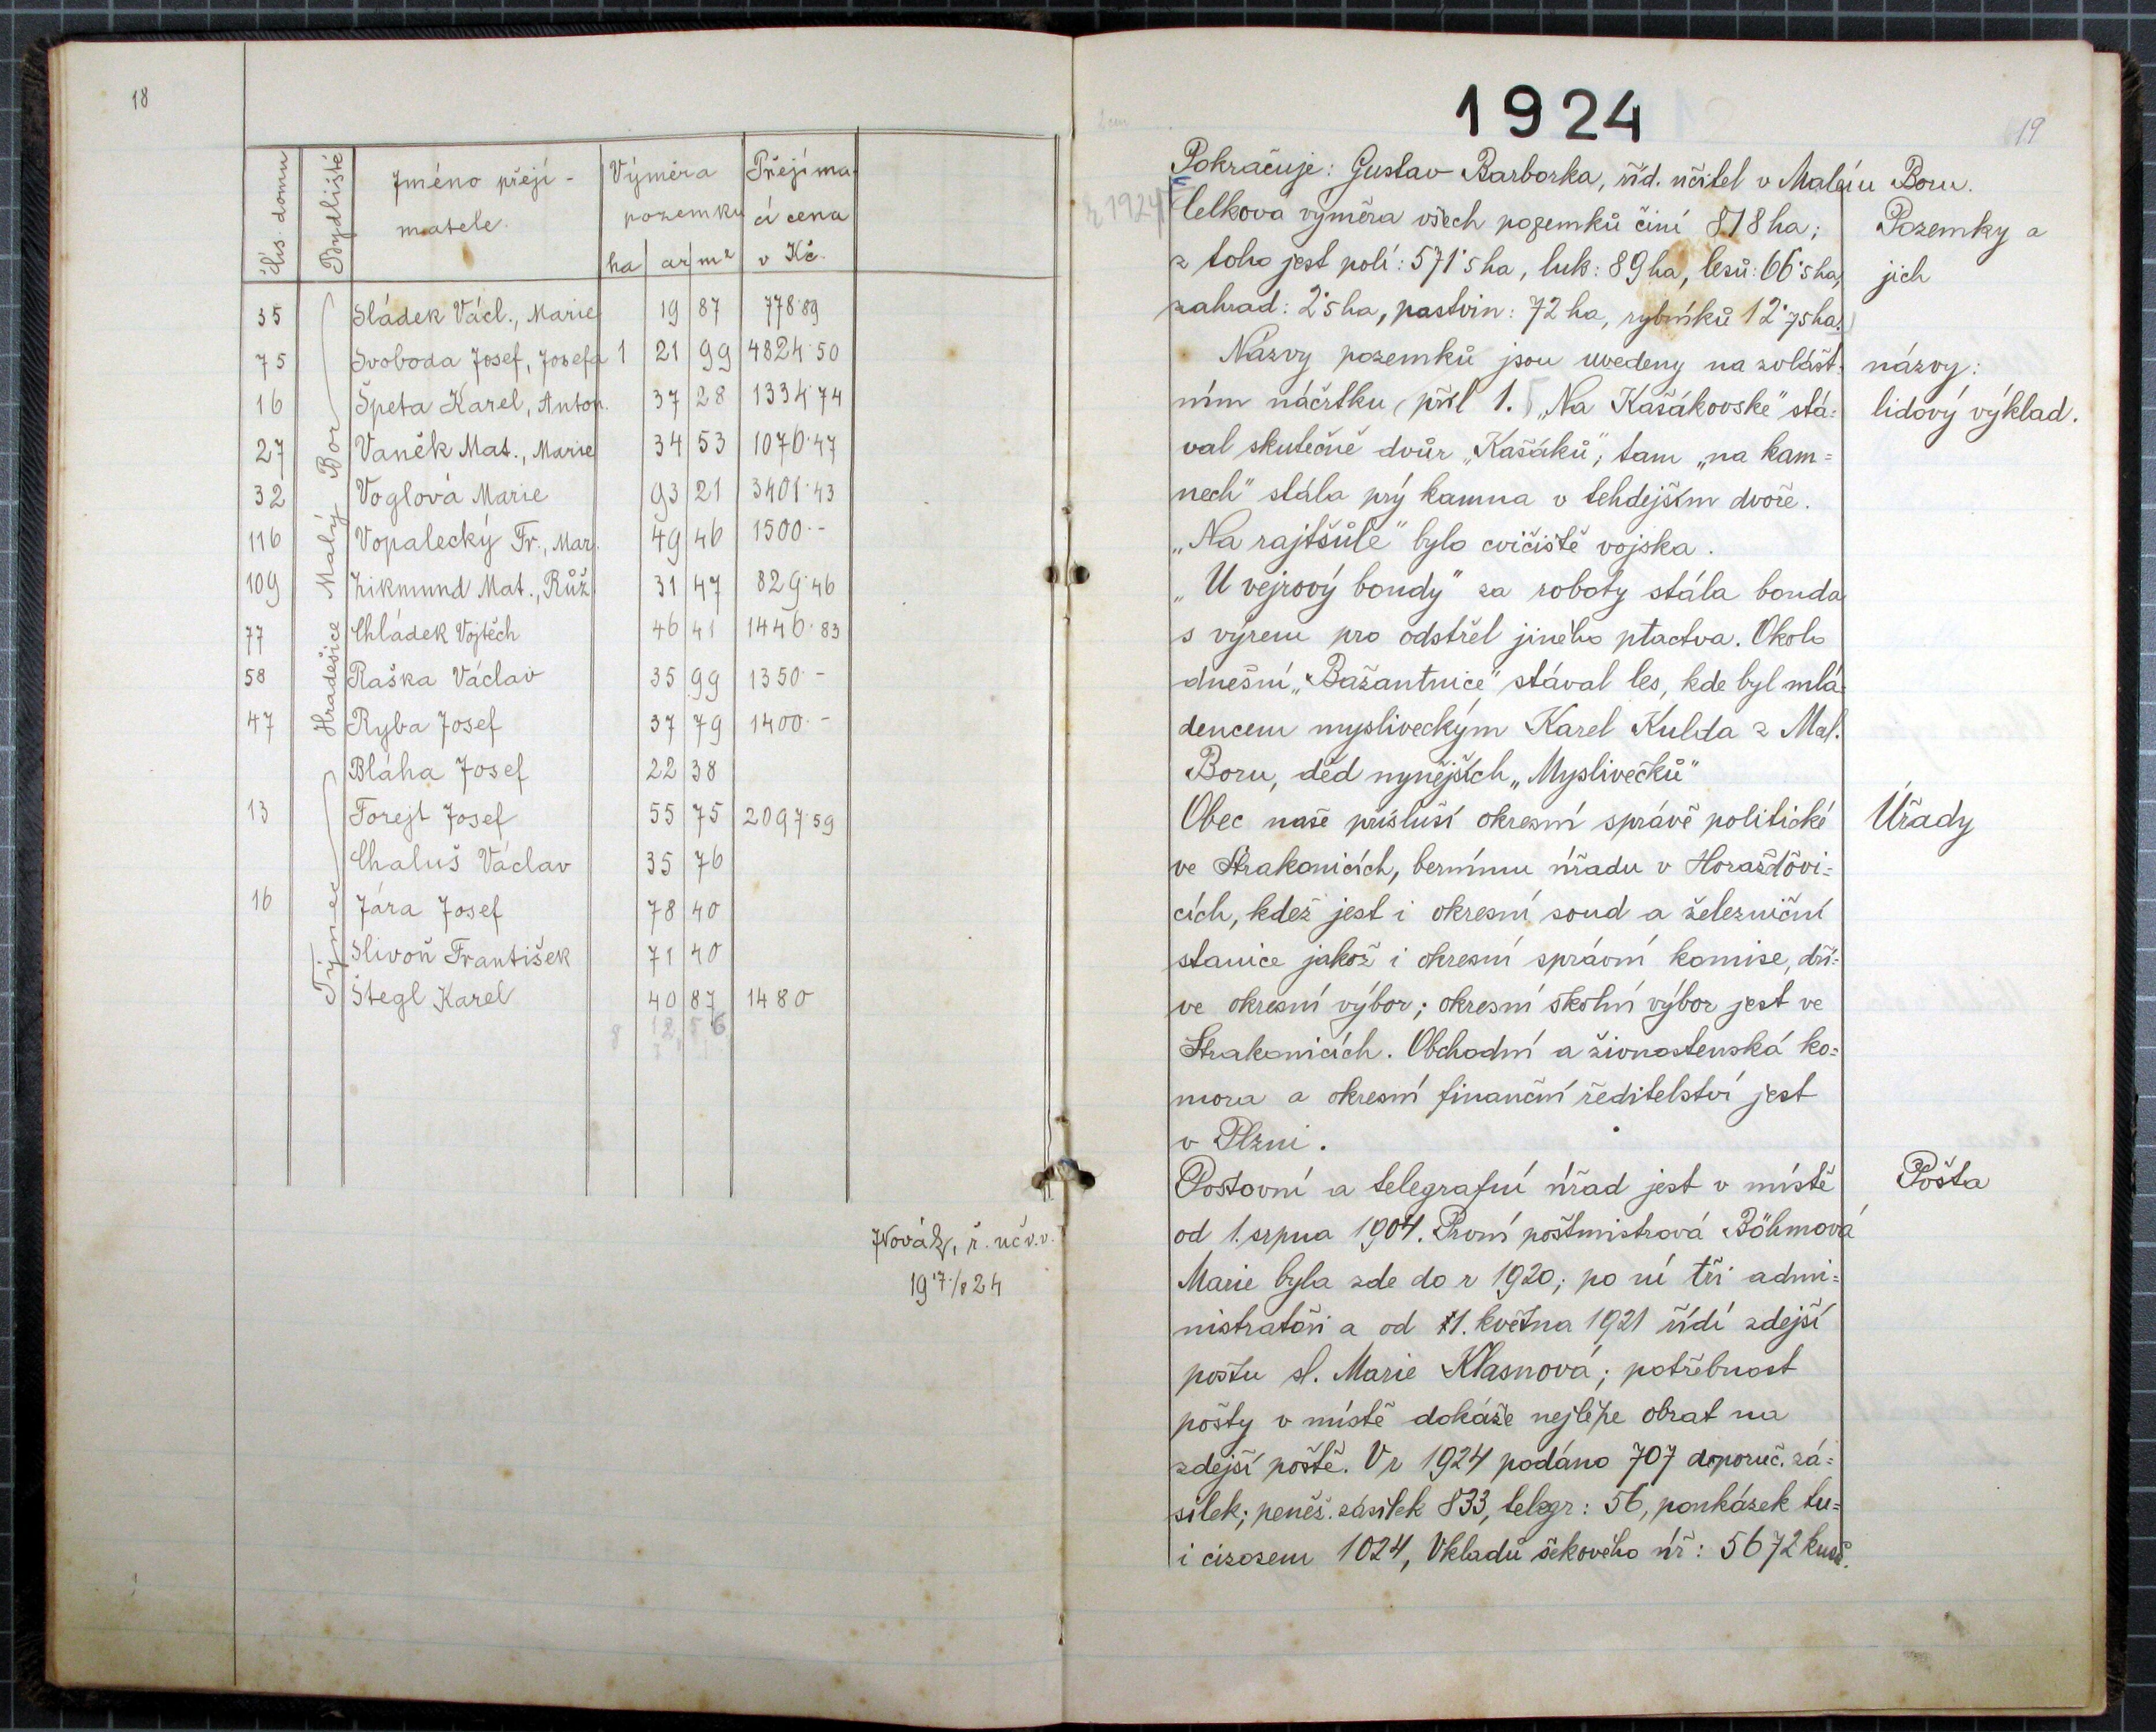 18
Čís. domu
Bydliště
Jméno přejí-
matele.
Výměra
pozemku
ha ar m²
Přejíma-
cí cena
v Kč.
Malý Bor
35 Sládek Václ., Marie 19 87 778·89
75 Svoboda Josef, Josefa 1 21 99 4824·50
16 Špeta Karel, Anton. 37 28 1334·74
27 Vaněk Mat., Marie 34 53 1076·47
32 Voglová Marie 93 21 3401·43
116 Vopalecký Fr., Mar. 49 46 1500·-
109 Zikmund Mat., Růž. 31 47 829·46
Hradešice
77 Chládek Vojtěch 46 41 1446·83
58 Raška Václav 35 99 1350·-
47 Ryba Josef 37 79 1400·-
Týnec
Bláha Josef 22 38
13 Forejt Josef 55 75 2097·59
Chaluš Václav 35 76
16 Jára Josef 78 40
Slivoň František 71 40
Štegl Karel 40 87 1480
8 12 56
Novák, ř. uč v.v.
19 17/8 24
1924
19
Pokračuje: Gustav Barborka, říd. učitel v Malém Boru.
r 1924
Celková výměra všech pozemků činí 818 ha;
Pozemky a
z toho jest polí: 571·5 ha, luk: 89 ha, lesů: 66·5 ha,
jich
zahrad: 2·5 ha, pastvin: 72 ha, rybníků 12·75 ha.
Názvy pozemků jsou uvedeny na zvlášt-
názvy:
ním náčrtku, příl 1. „Na Kašákovské" stá-
lidový výklad.
val skutečně dvůr „Kašáků"; tam „na kam=
nech" stála prý kamna v tehdejším dvoře.
„Na rajtšůle" bylo cvičiště vojska.
„U vejrový boudy" za roboty stála bouda
s výrem pro odstřel jiného ptactva. Okolo
dnešní „Bažantnice" stával les, kde byl mlá-
dencem mysliveckým Karel Kulda z Mal.
Boru, děd nynějších „Myslivečků"
Obec naše přísluší okresní správě politické
Úřady
ve Strakonicích, bernímu úřadu v Horažďovi=
cích, kdež jest i okresní soud a železniční
stanice jakož i okresní správní komise, dří=
ve okresní výbor; okresní školní výbor jest ve
Strakonicích. Obchodní a živnostenská ko=
mora a okresní finanční ředitelství jest
v Plzni.
Poštovní a telegrafní úřad jest v místě
Pošta
od 1. srpna 1904. První poštmistrová Böhmová
Marie byla zde do r 1920; po ní tři admi=
nistratoři a od 11. května 1921 řídí zdejší
poštu sl. Marie Klasnová; potřebnost
pošty v místě dokáže nejlépe obrat na
zdejší poště. V r 1924 podáno 707 doporuč. zá=
silek; peněž. zásilek 833, telegr: 56, poukázek tu=
i cizozem 1024, Vkladů šekového úř: 5672 kusů.